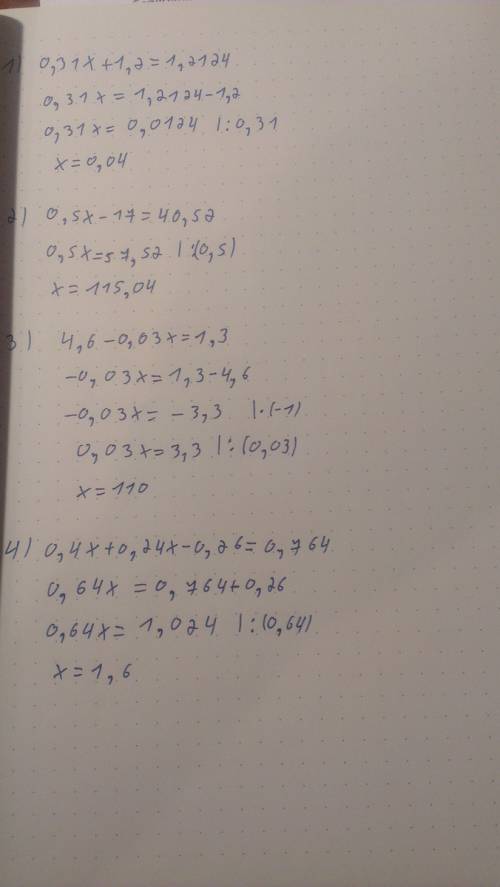 1) 0,31x+1,2=1,2124
0,31x=1,2124-1,2
0,31x=0,0124 |:0,31
x=0,04
2) 0,5x-17=40,52
0,5x=57,52 |:(0,5)
x=115,04
3) 4,6-0,03x=1,3
-0,03x=1,3-4,6
-0,03x=-3,3 |·(-1)
0,03x=3,3 |:(0,03)
x=110
4) 0,4x+0,24x-0,26=0,764
0,64x=0,764+0,26
0,64x=1,024 |:(0,64)
x=1,6